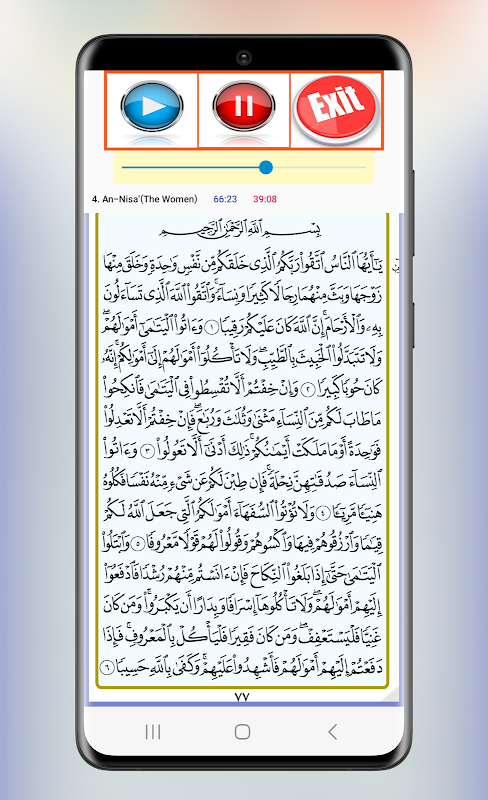 Exit
4. An-Nisa'(The Women) 66:23 39:08
بِسْمِ ٱللَّهِ ٱلرَّحْمَٰنِ ٱلرَّحِيمِ
يَٰٓأَيُّهَا ٱلنَّاسُ ٱتَّقُوا۟ رَبَّكُمُ ٱلَّذِى خَلَقَكُم مِّن نَّفْسٍ وَٰحِدَةٍ وَخَلَقَ مِنْهَا
زَوْجَهَا وَبَثَّ مِنْهُمَا رِجَالًا كَثِيرًا وَنِسَآءً ۚ وَٱتَّقُوا۟ ٱللَّهَ ٱلَّذِى تَسَآءَلُونَ
بِهِۦ وَٱلْأَرْحَامَ ۚ إِنَّ ٱللَّهَ كَانَ عَلَيْكُمْ رَقِيبًا ١ وَءَاتُوا۟ ٱلْيَتَٰمَىٰٓ أَمْوَٰلَهُمْ ۖ
وَلَا تَتَبَدَّلُوا۟ ٱلْخَبِيثَ بِٱلطَّيِّبِ ۖ وَلَا تَأْكُلُوٓا۟ أَمْوَٰلَهُمْ إِلَىٰٓ أَمْوَٰلِكُمْ ۚ إِنَّهُۥ
كَانَ حُوبًا كَبِيرًا ٢ وَإِنْ خِفْتُمْ أَلَّا تُقْسِطُوا۟ فِى ٱلْيَتَٰمَىٰ فَٱنكِحُوا۟
مَا طَابَ لَكُم مِّنَ ٱلنِّسَآءِ مَثْنَىٰ وَثُلَٰثَ وَرُبَٰعَ ۖ فَإِنْ خِفْتُمْ أَلَّا تَعْدِلُوا۟
فَوَٰحِدَةً أَوْ مَا مَلَكَتْ أَيْمَٰنُكُمْ ۚ ذَٰلِكَ أَدْنَىٰٓ أَلَّا تَعُولُوا۟ ٣ وَءَاتُوا۟
ٱلنِّسَآءَ صَدُقَٰتِهِنَّ نِحْلَةً ۚ فَإِن طِبْنَ لَكُمْ عَن شَىْءٍ مِّنْهُ نَفْسًا فَكُلُوهُ
هَنِيٓـًٔا مَّرِيٓـًٔا ٤ وَلَا تُؤْتُوا۟ ٱلسُّفَهَآءَ أَمْوَٰلَكُمُ ٱلَّتِى جَعَلَ ٱللَّهُ لَكُمْ
قِيَٰمًا وَٱرْزُقُوهُمْ فِيهَا وَٱكْسُوهُمْ وَقُولُوا۟ لَهُمْ قَوْلًا مَّعْرُوفًا ٥ وَٱبْتَلُوا۟
ٱلْيَتَٰمَىٰ حَتَّىٰٓ إِذَا بَلَغُوا۟ ٱلنِّكَاحَ فَإِنْ ءَانَسْتُم مِّنْهُمْ رُشْدًا فَٱدْفَعُوٓا۟
إِلَيْهِمْ أَمْوَٰلَهُمْ ۖ وَلَا تَأْكُلُوهَآ إِسْرَافًا وَبِدَارًا أَن يَكْبَرُوا۟ ۚ وَمَن كَانَ
غَنِيًّا فَلْيَسْتَعْفِفْ ۖ وَمَن كَانَ فَقِيرًا فَلْيَأْكُلْ بِٱلْمَعْرُوفِ ۚ فَإِذَا
دَفَعْتُمْ إِلَيْهِمْ أَمْوَٰلَهُمْ فَأَشْهِدُوا۟ عَلَيْهِمْ ۚ وَكَفَىٰ بِٱللَّهِ حَسِيبًا ٦
٧٧